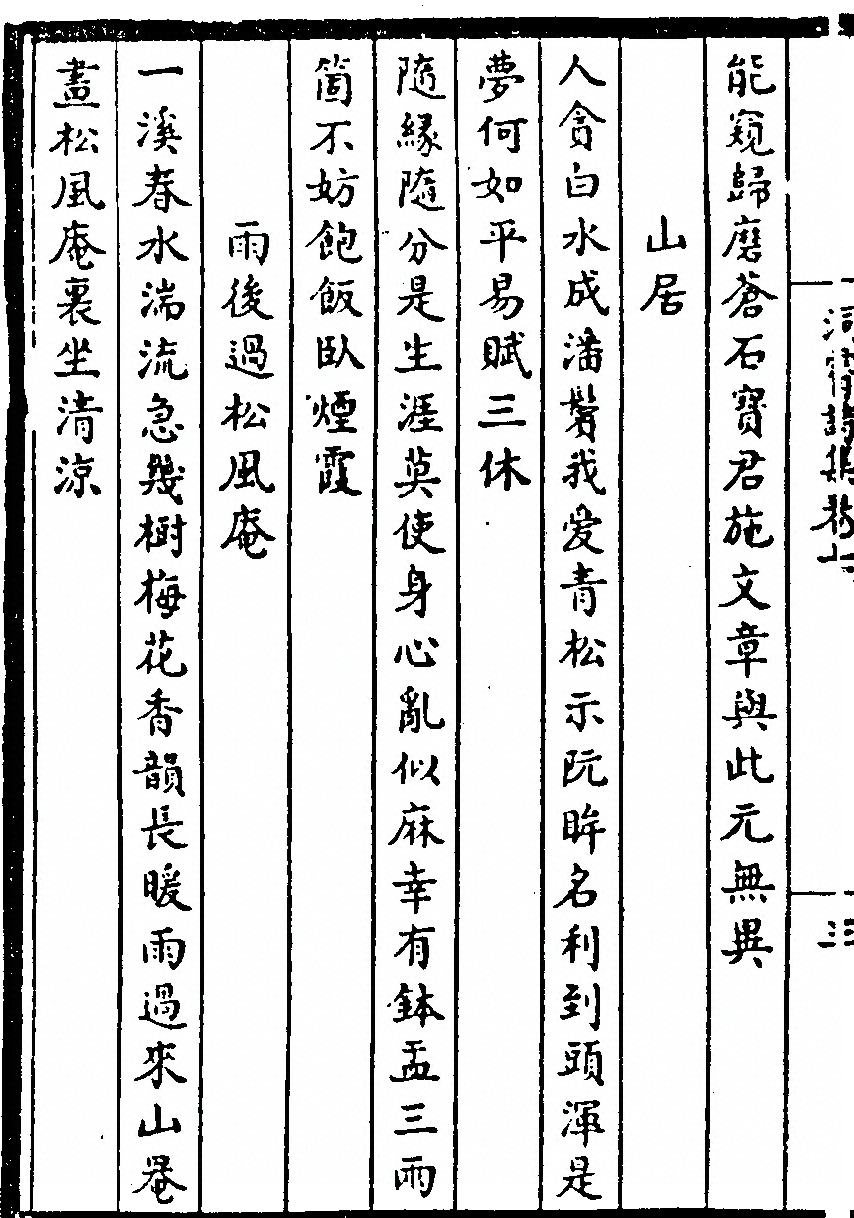 能窺歸磨蒼石寶君施文章與此元無異
山居
人貪白水成潘鬢我愛青松示阮眸名利到頭渾是
夢何如平易賦三休
隨緣隨分是生涯莫使身心亂似麻幸有鉢盂三兩
箇不妨飽飯臥煙霞
雨後過松風庵
一溪春水湍流急幾樹梅花香韻長暖雨過來山罨
畫松風庵裏坐清凉
三